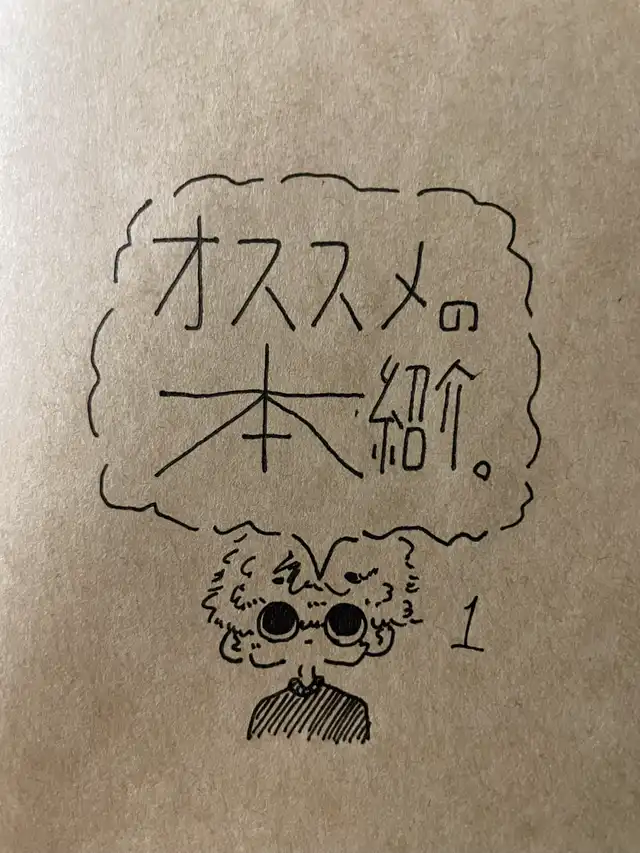 オススメの
本紹介。
1